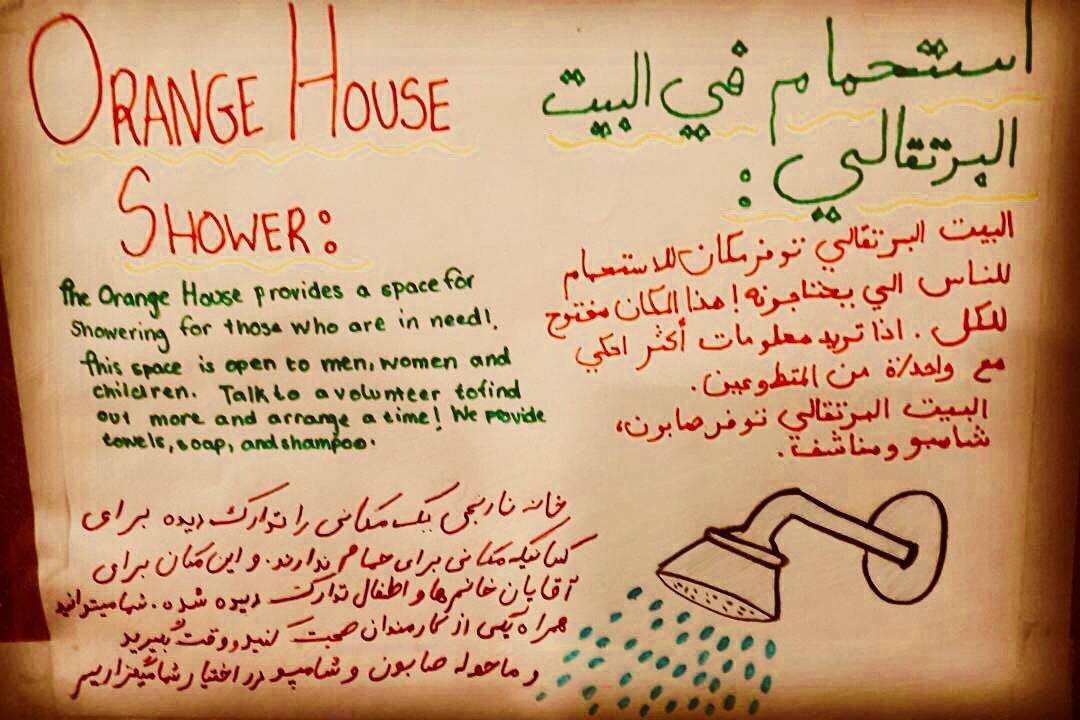 ORANGE HOUSE
SHOWER:
The Orange House provides a space for
showering for those who are in need!.
This space is open to men, women and
children. Talk to a volunteer to find
out more and arrange a time! We povide
towels, soap, and shampoo.
استحمام في البيت
البرتقالي:
البيت البرتقالي توفر مكان للاستحمام
للناس الي يحتاجونه! هذا المكان مفتوح
للكل. اذا تريد معلومات أكثر احكي
مع واحد/ة من المتطوعين.
البيت البرتقالي توفر صابون،
شامبو ومناشف.
خانه نارنجی یک مکانی را تدارک دیده برای
کسانیکه مکانی برای حمام ندارند. و این مکان برای
آقایان خانم ها و اطفال تدارک دیده شده. شما میتوانید
همراه یکی از کارمندان صحبت کنید و وقت بگیرید
و ما حوله صابون و شامپو در اختیار شما میگزاریم